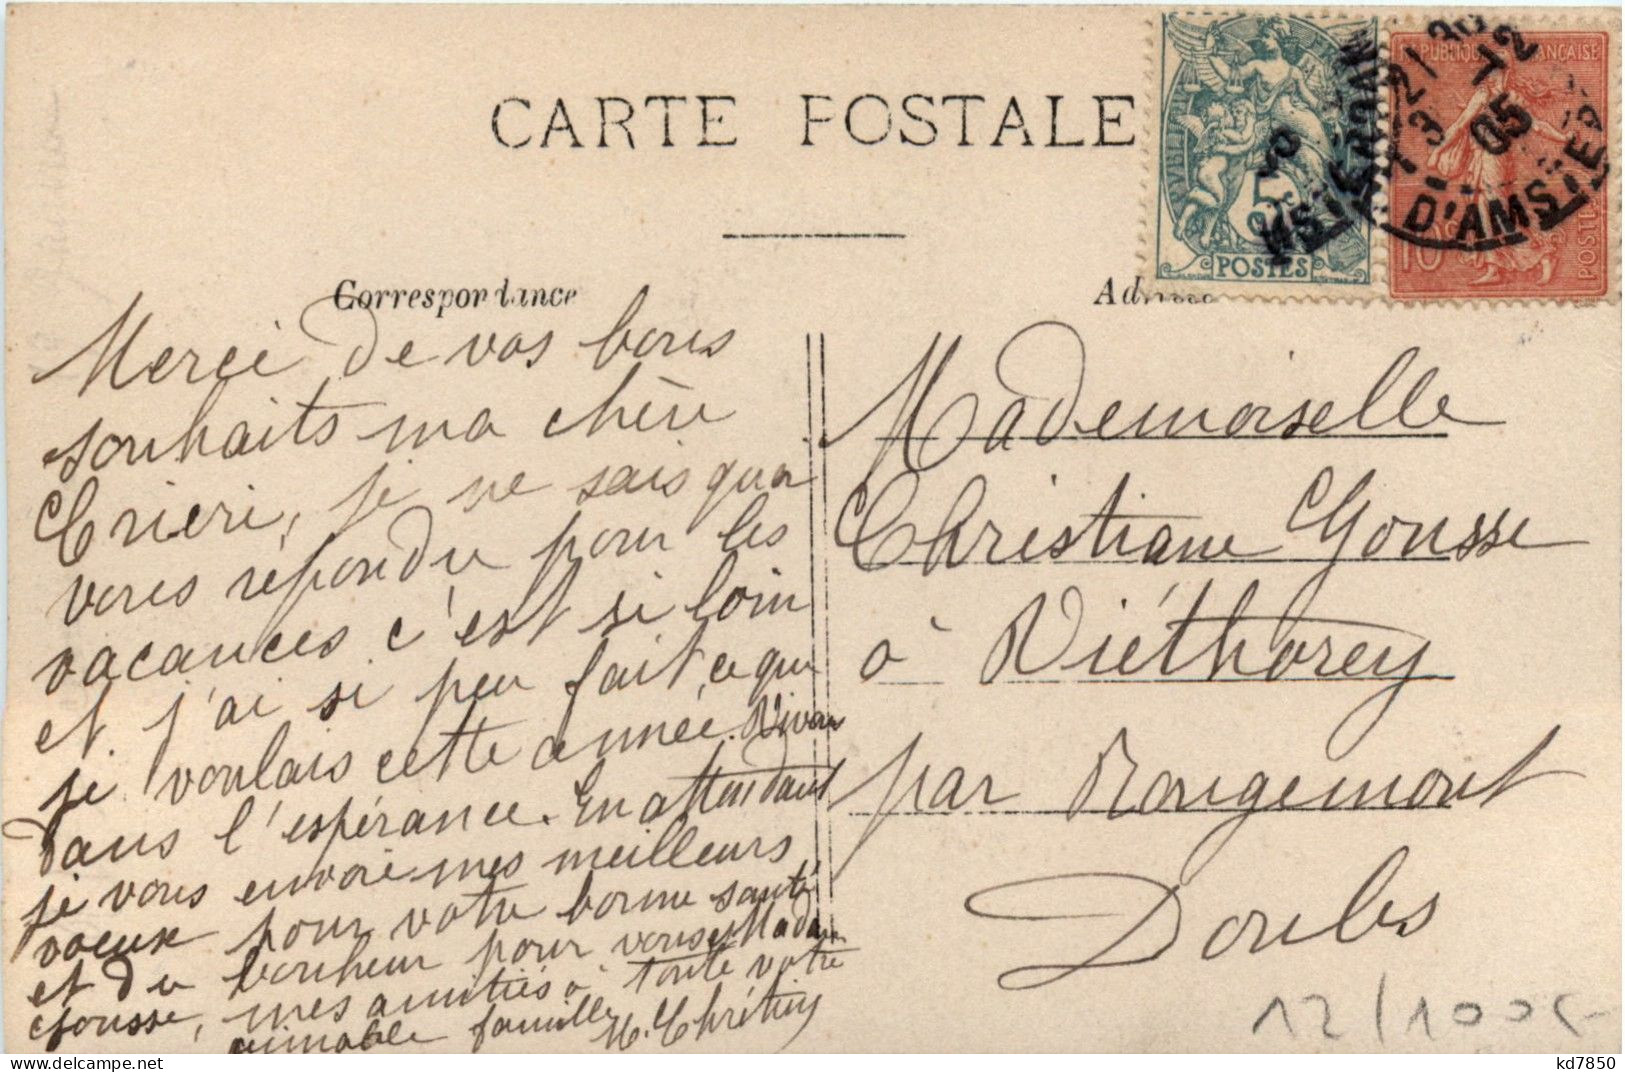 CARTE POSTALE
RÉPUBLIQUE FRANÇAISE
5
POSTES
10
POSTES
12
05
D'AMSTERDAM
Correspondance
Merci de vos bons
souhaits ma chère
je ne sais quoi
vous répondre pour les
vacances c'est si loin
et j'ai si peu fait ce que
je voulais cette année. Vivons
dans l'espérance. En attendant
je vous envoie mes meilleurs
voeux pour votre bonne santé
et du bonheur pour vous et Madame
Gousse, mes amitiés à toute votre
aimable famille
Mademoiselle
Christiane Gousse
à Viéthorey
par Rougemont
Doubs
12/1005-
kd7850